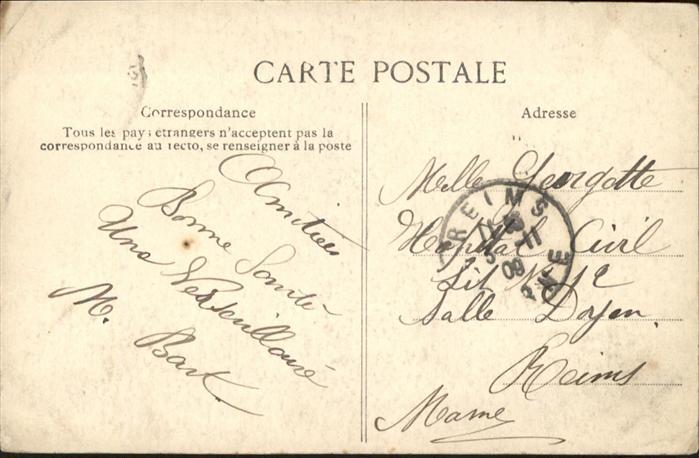 CARTE POSTALE
Correspondance
Tous les pays étrangers n'acceptent pas la
correspondance au recto, se renseigner à la poste
Amitiés
Bonne Santé
Une Versaillaise
M. Bart.
Adresse
Melle Georgette
Hopital Civil
Lit N 12
Salle Doyen
Reims
Marne
REIMS
MARNE
5 - 11
09